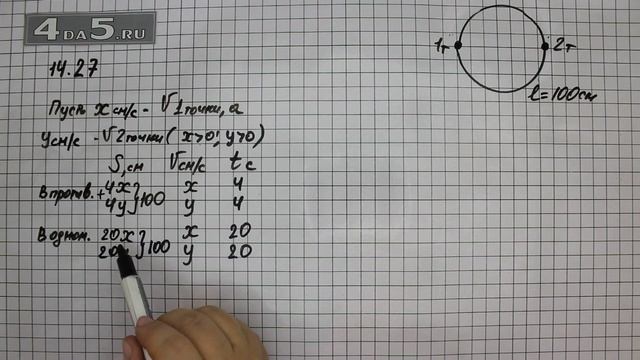 4DA5.RU
14.27
1т 2т
l=100см
Пусть x см/с - V 1 точки, а
y см/с - V 2 точки (x>0; y>0)
S, см V см/с t с
В против. + 4x } 100 x 4
4y y 4
В одном. 20x } 100 x 20
20 y 20